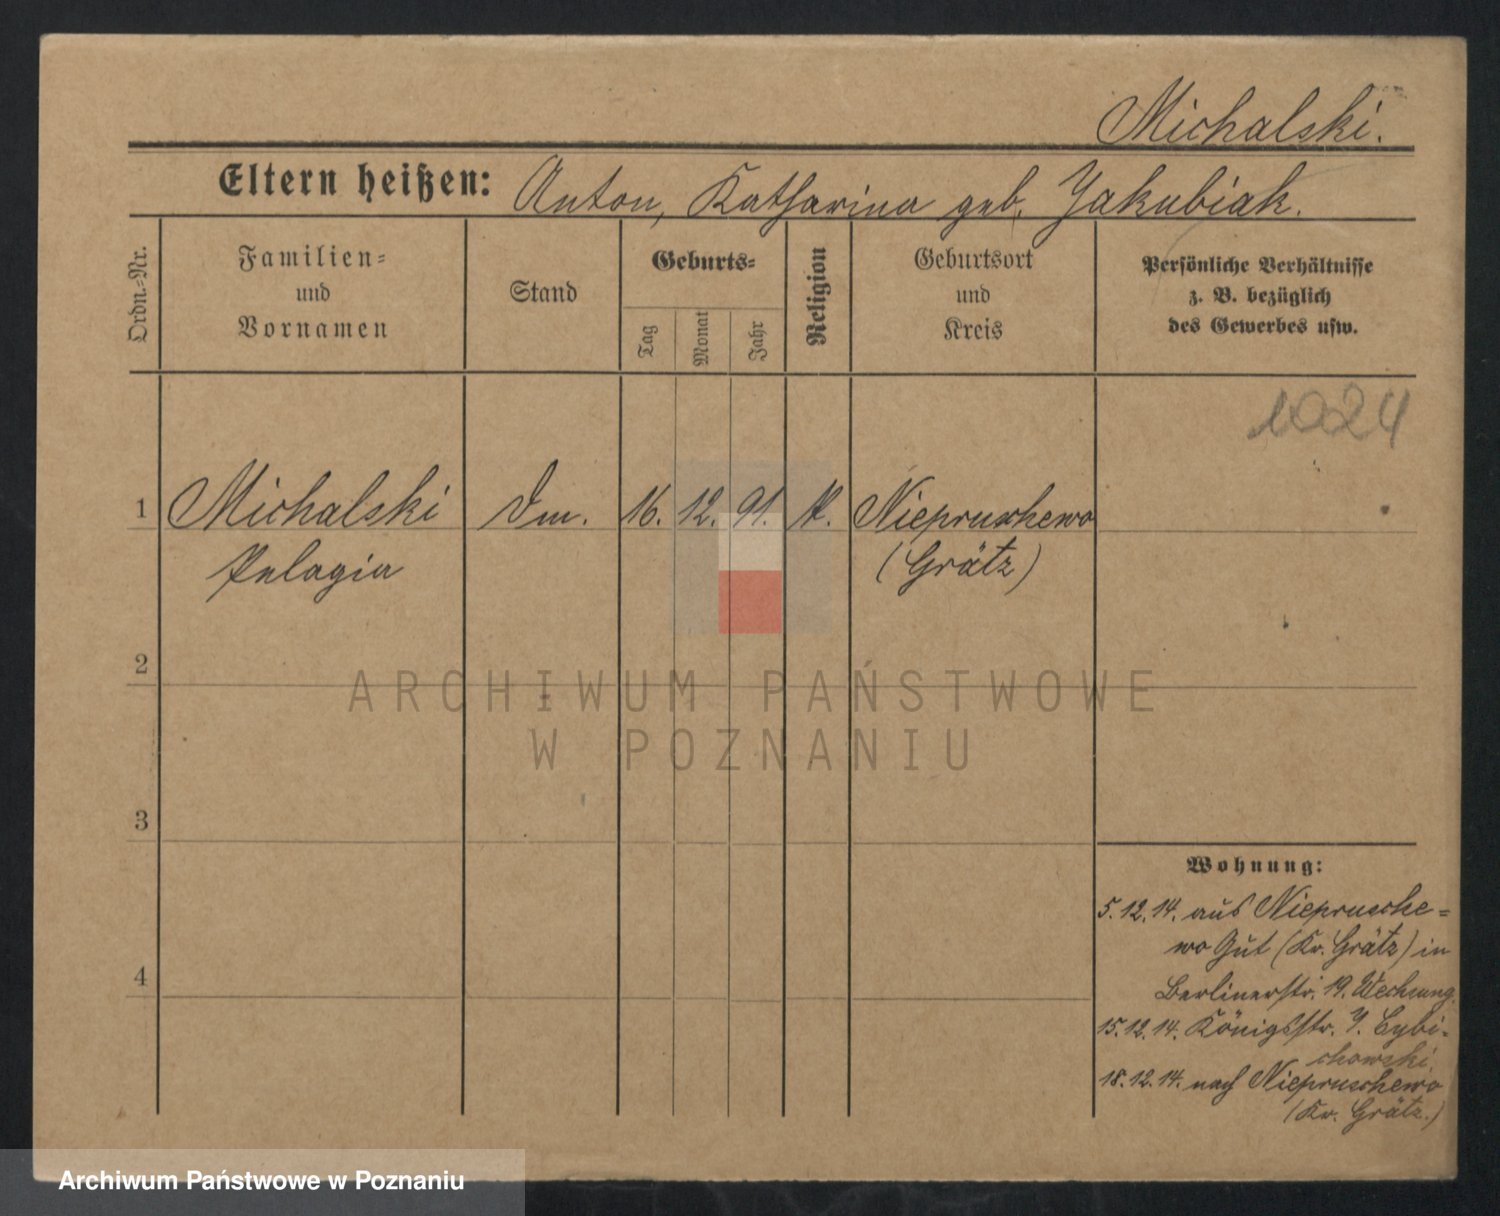 Michalski.
Eltern heißen: Anton, Katharina geb. Jakubiak.
Ordn.-Nr.
Familien-
und
Vornamen
Stand
Geburts-
Tag
Monat
Jahr
Religion
Geburtsort
und
Kreis
Persönliche Verhältnisse
z. B. bezüglich
des Gewerbes usw.
1024
1 Michalski 16. 12. 91. k. Niepruschewo
Pelagia (Grätz)
2
ARCHIWUM PAŃSTWOWE
W POZNANIU
3
Wohnung:
5.12.14. aus Nieprusche-
wo Gut (Kr. Grätz) in
4
Berlinerstr. 19.
15.12.14. Königsstr. Cybi-
chowski
18.12.14. nach Niepruschewo
(Kr. Grätz.)
Archiwum Państwowe w Poznaniu